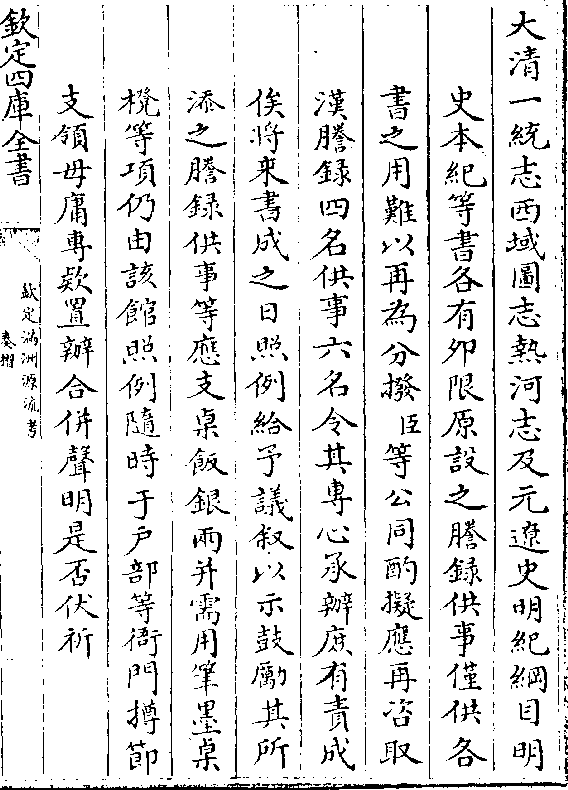 大清一統志西域圖志熱河志及元遼史明紀綱目明
史本紀等書各有卯限原設之謄録供事僅供各
書之用難以再為分撥臣等公同酌擬應再咨取
漢謄録四名供事六名令其專心承辦庶有責成
俟將来書成之日照例給予議叙以示鼓勵其所
添之謄録供事等應支桌飯銀兩并需用筆墨桌
櫈等項仍由該館照例隨時于戸部等衙門撙節
支領毋庸專欵置辦合併聲明是否伏祈
欽定四庫全書
欽定滿洲源流考
奏摺